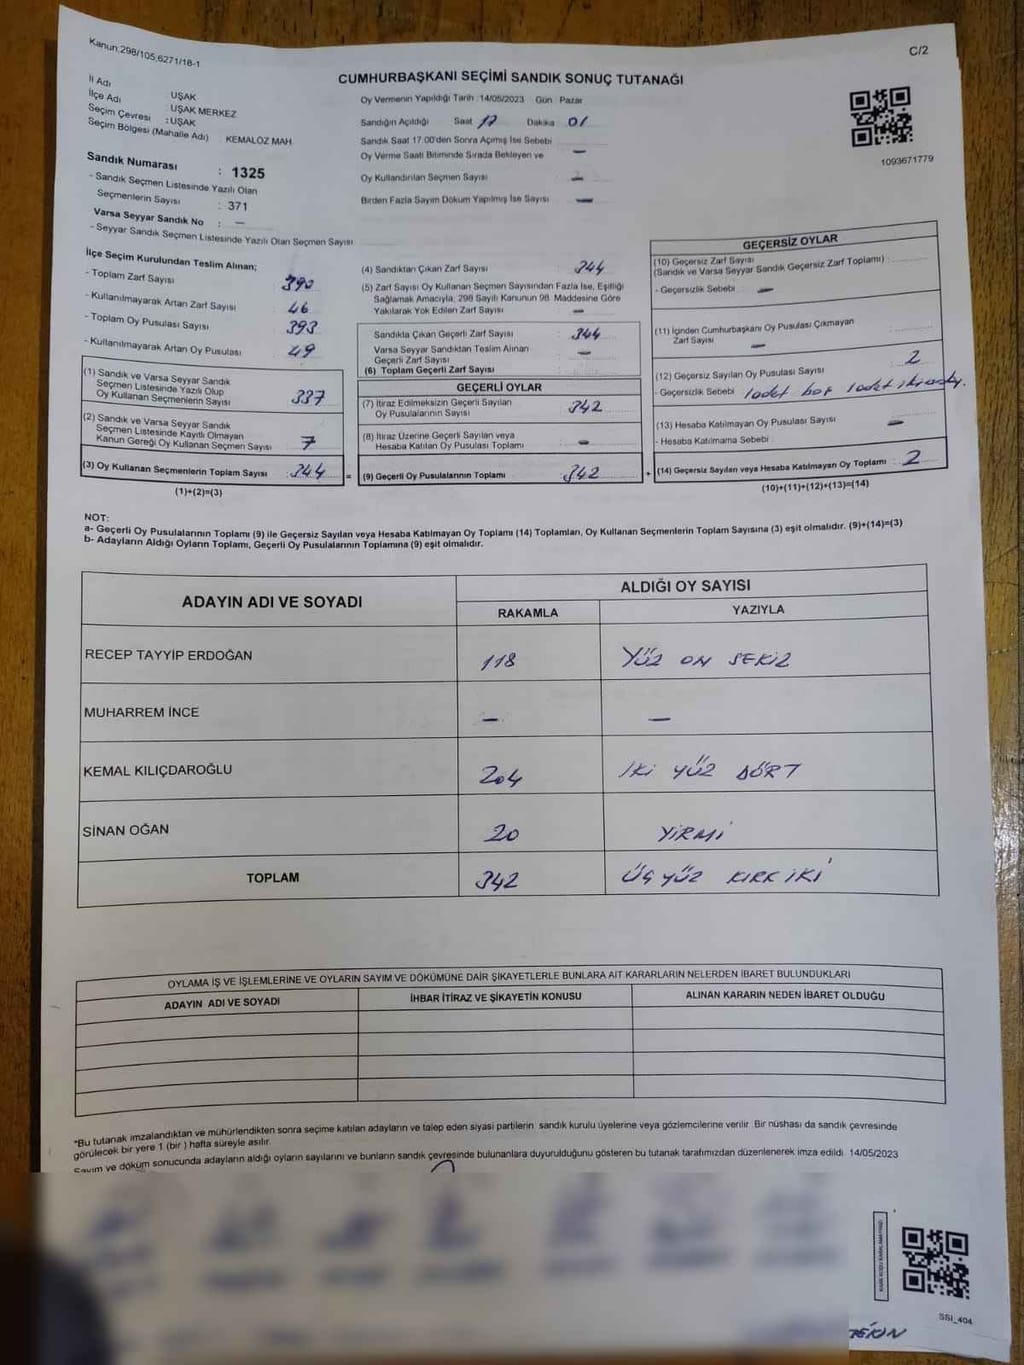 Kanun;298/105,6271/18-1
C/2
CUMHURBAŞKANI SEÇİMİ SANDIK SONUÇ TUTANAĞI
İl Adı UŞAK
İlçe Adı UŞAK MERKEZ
Seçim Çevresi : UŞAK
Seçim Bölgesi (Mahalle Adı) KEMALÖZ MAH.
Sandık Numarası : 1325
- Sandık Seçmen Listesinde Yazılı Olan
Seçmenlerin Sayısı : 371
Varsa Seyyar Sandık No : —
- Seyyar Sandık Seçmen Listesinde Yazılı Olan Seçmen Sayısı
Oy Vermenin Yapıldığı Tarih :14/05/2023 Gün : Pazar
Sandığın Açıldığı Saat 17 Dakika 01
Sandık Saat 17.00'den Sonra Açımış İse Sebebi
Oy Verme Saati Bitiminde Sırada Bekleyen ve —
Oy Kullandırılan Seçmen Sayısı —
Birden Fazla Sayım Döküm Yapılmış İse Sayısı —
1093671779
İlçe Seçim Kurulundan Teslim Alınan;
- Toplam Zarf Sayısı 390
- Kullanılmayarak Artan Zarf Sayısı : 46
- Toplam Oy Pusulası Sayısı 393
- Kullanılmayarak Artan Oy Pusulası : 49
(1) Sandık ve Varsa Seyyar Sandık
Seçmen Listesinde Yazılı Olup
Oy Kullanan Seçmenlerin Sayısı 337
(2) Sandık ve Varsa Seyyar Sandık
Seçmen Listesinde Kayıtlı Olmayan
Kanun Gereği Oy Kullanan Seçmen Sayısı : 7
(3) Oy Kullanan Seçmenlerin Toplam Sayısı : 344 =
(1)+(2)=(3)
(4) Sandıktan Çıkan Zarf Sayısı 344
(5) Zarf Sayısı Oy Kullanan Seçmen Sayısından Fazla İse, Eşitliği
Sağlamak Amacıyla, 298 Sayılı Kanunun 98. Maddesine Göre
Yakılarak Yok Edilen Zarf Sayısı —
Sandıkta Çıkan Geçerli Zarf Sayısı : 344
Varsa Seyyar Sandıktan Teslim Alınan
Geçerli Zarf Sayısı —
(6) Toplam Geçerli Zarf Sayısı
GEÇERLİ OYLAR
(7) İtiraz Edilmeksizin Geçerli Sayılan
Oy Pusulalarının Sayısı : 342
(8) İtiraz Üzerine Geçerli Sayılan veya
Hesaba Katılan Oy Pusulası Toplamı : —
(9) Geçerli Oy Pusulalarının Toplamı : 342 +
GEÇERSİZ OYLAR
(10) Geçersiz Zarf Sayısı
(Sandık ve Varsa Seyyar Sandık Geçersiz Zarf Toplamı) :
- Geçersizlik Sebebi : —
(11) İçinden Cumhurbaşkanı Oy Pusulası Çıkmayan
Zarf Sayısı —
(12) Geçersiz Sayılan Oy Pusulası Sayısı 2
- Geçersizlik Sebebi 1 adet boş 1 adet
(13) Hesaba Katılmayan Oy Pusulası Sayısı —
- Hesaba Katılmama Sebebi
(14) Geçersiz Sayılan veya Hesaba Katılmayan Oy Toplamı : 2
(10)+(11)+(12)+(13)=(14)
NOT:
a- Geçerli Oy Pusulalarının Toplamı (9) ile Geçersiz Sayılan veya Hesaba Katılmayan Oy Toplamı (14) Toplamları, Oy Kullanan Seçmenlerin Toplam Sayısına (3) eşit olmalıdır. (9)+(14)=(3)
b- Adayların Aldığı Oyların Toplamı, Geçerli Oy Pusulalarının Toplamına (9) eşit olmalıdır.
ADAYIN ADI VE SOYADI ALDIĞI OY SAYISI
RAKAMLA YAZIYLA
RECEP TAYYİP ERDOĞAN 118 YÜZ ON SEKİZ
MUHARREM İNCE — —
KEMAL KILIÇDAROĞLU 204 İKİ YÜZ DÖRT
SİNAN OĞAN 20 YİRMİ
TOPLAM 342 ÜÇ YÜZ KIRK İKİ
OYLAMA İŞ VE İŞLEMLERİNE VE OYLARIN SAYIM VE DÖKÜMÜNE DAİR ŞİKAYETLERLE BUNLARA AİT KARARLARIN NELERDEN İBARET BULUNDUKLARI
ADAYIN ADI VE SOYADI İHBAR İTİRAZ VE ŞİKAYETİN KONUSU ALINAN KARARIN NEDEN İBARET OLDUĞU
*Bu tutanak imzalandıktan ve mühürlendikten sonra seçime katılan adayların ve talep eden siyasi partilerin sandık kurulu üyelerine veya gözlemcilerine verilir. Bir nüshası da sandık çevresinde
görülecek bir yere 1 (bir ) hafta süreyle asılır.
Sayım ve döküm sonucunda adayların aldığı oyların sayılarını ve bunların sandık çevresinde bulunanlara duyurulduğunu gösteren bu tutanak tarafımızdan düzenlenerek imza edildi. 14/05/2023
SSİ_404